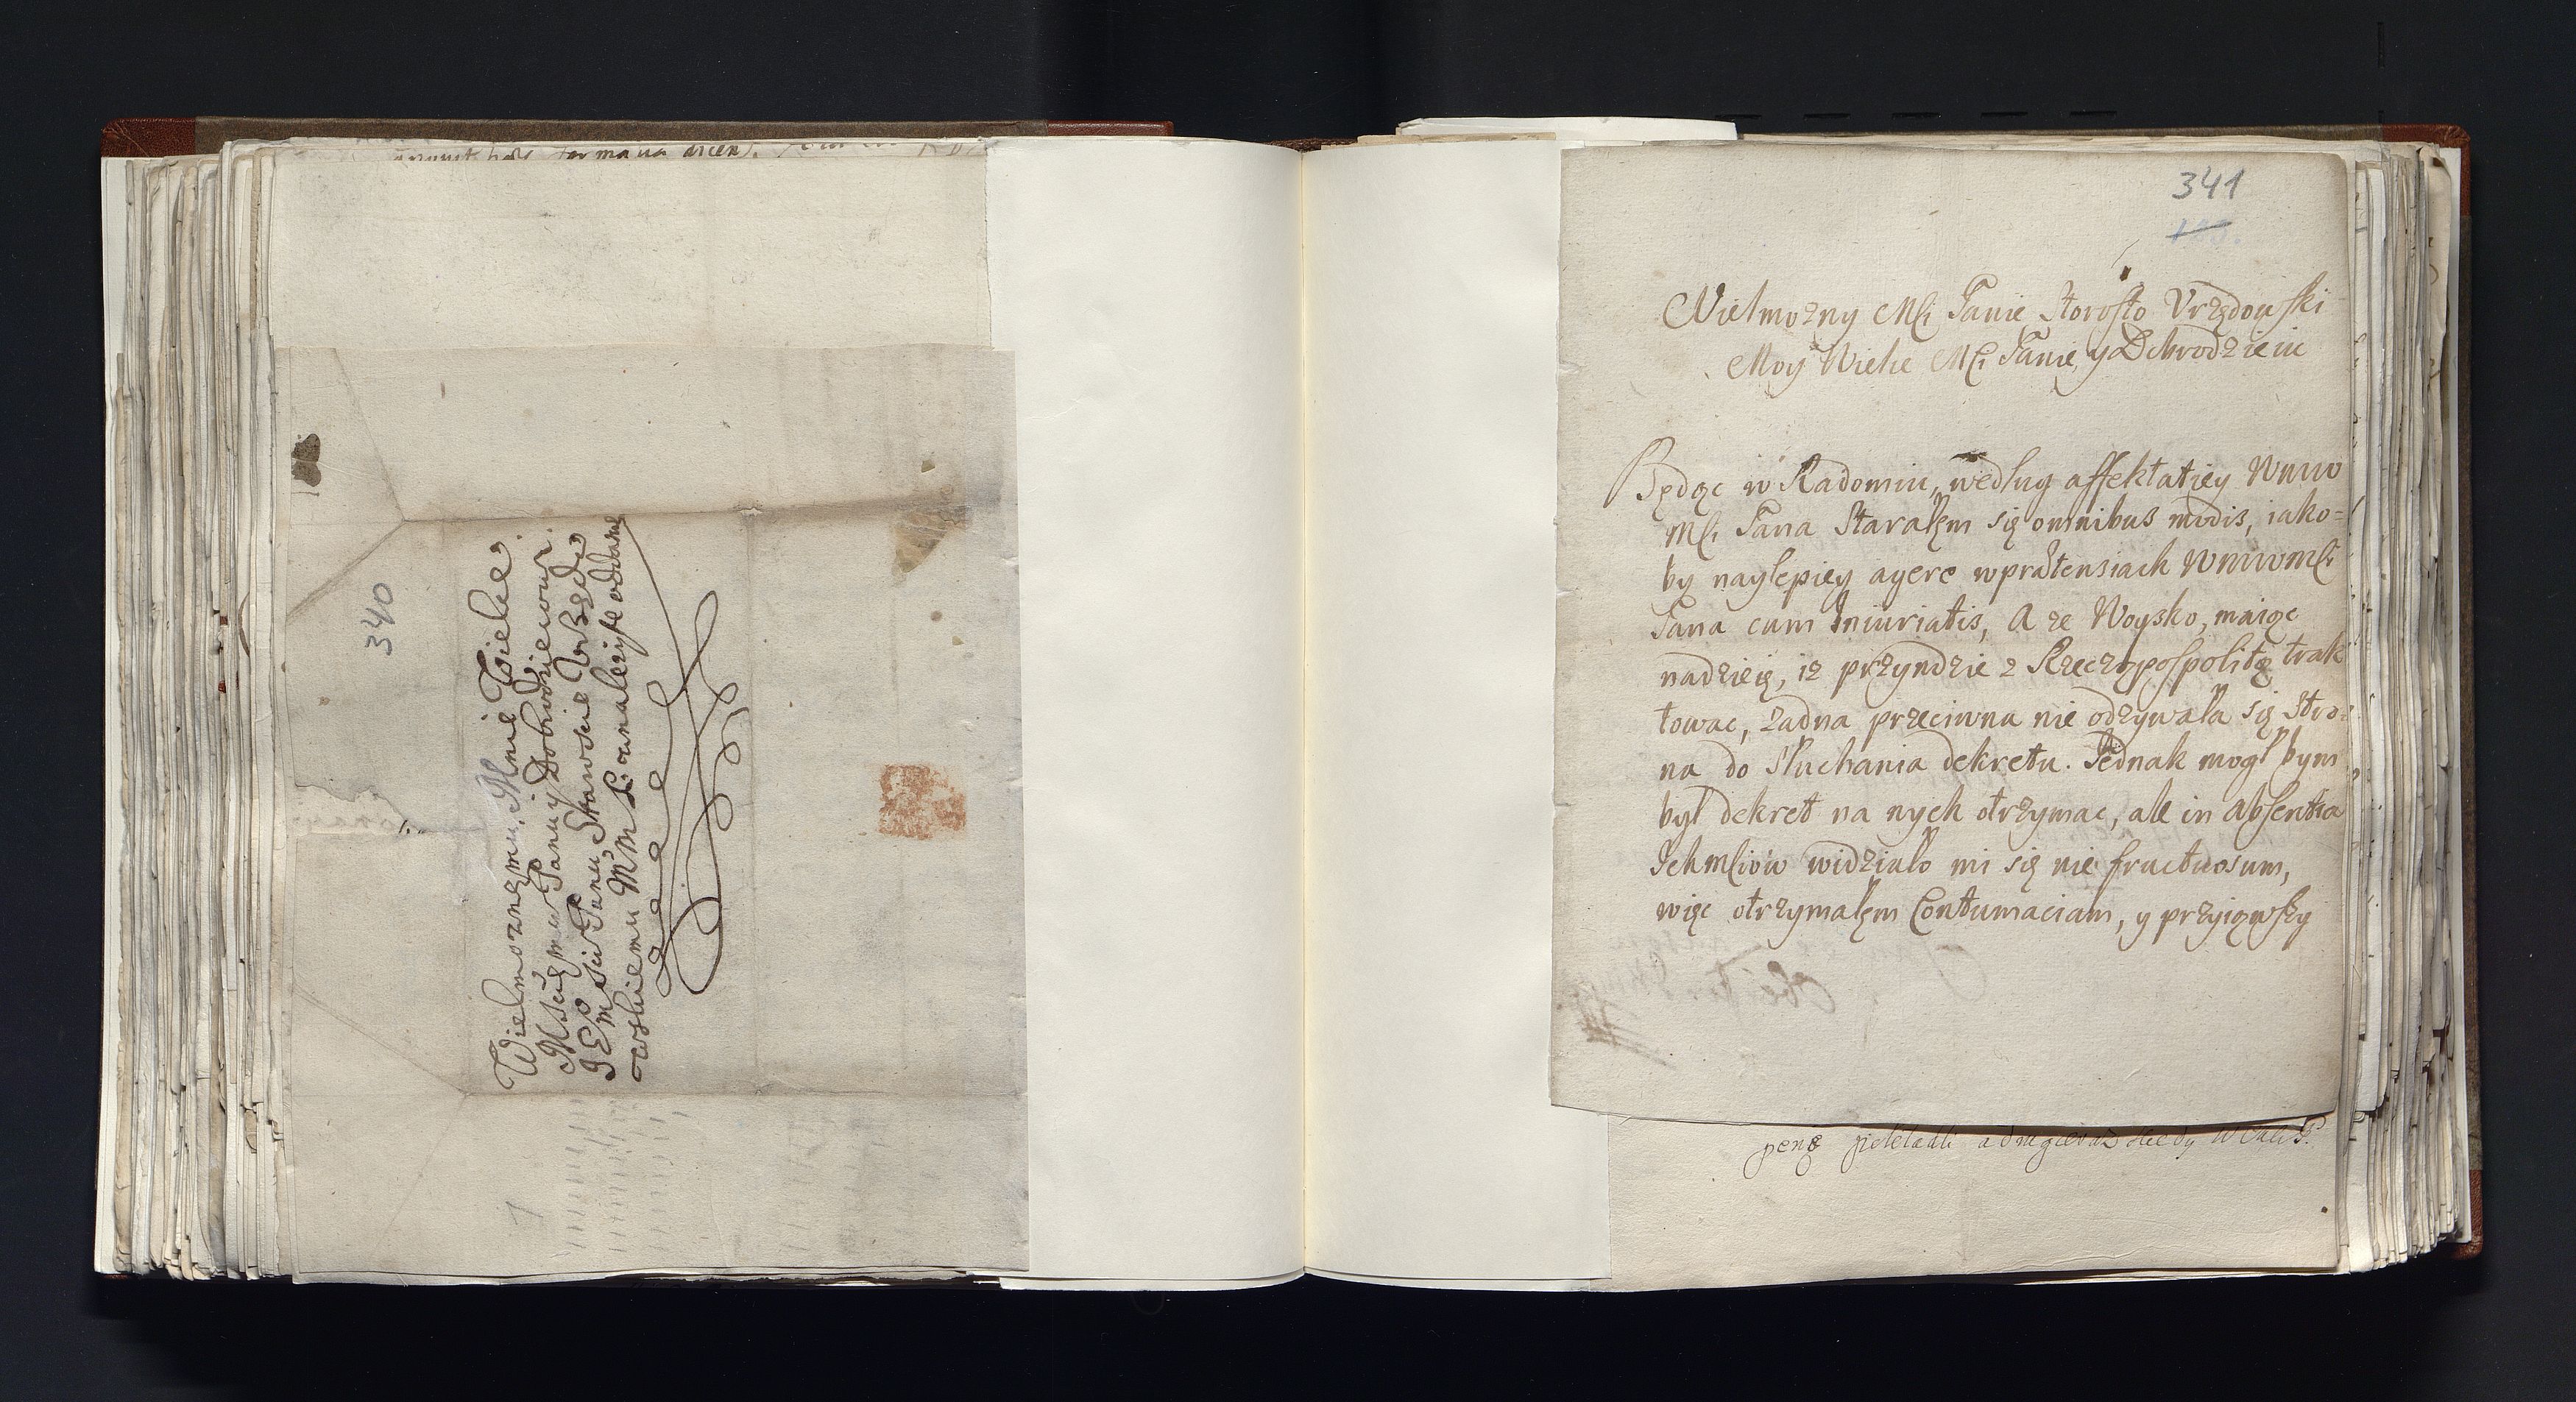 340
Wielmoznęmu, Mnie Wielce
Mscięmu Panu y Dobrodzieiowi.
JE Msci Panu, Staroscie Vrzędo
wskiemu M M P. wnależyte oddane
341
Wielmozny Mſi Panie Starosto Vrzędowſki
Moy Wielce Mſi Panie, y Dobrodzieiu
Będąc w Radomiu, według affektatiey Wmw
Mſi Pana starałęm się omnibus modis, iako-
by naylepiey agere wprætensiach WmwMſi
Pana cum Iniuriatis, A ze Woysko, maiąc
nadzieię, iz przyndzie z Rzecząpoſpolitą trak
towac, zadna przeciwna nie odzywała się stro-
na do słuchania dekretu. Jednak mogł bym
był dekret na nych otrzymac, ale in abſentia
Ichmſciow widziało mi się nie fructuosum,
więc otrzymałęm Contumaciam, y przyiąwſzy